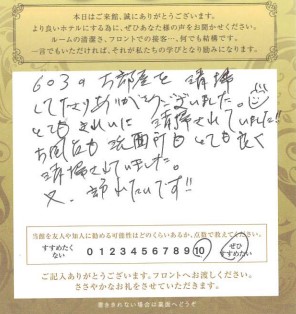 本日はご来館、誠にありがとうございます。
より良いホテルにする為に、ぜひあなた様の声をお聞かせください。
ルームの清潔さ、フロントでの接客…、何でも結構です。
一言でもいただければ、それが私たちの学びとなり励みになります。
603のお部屋を清掃
して下さりありがとうございました。
とてもきれいに清掃されていました!!
お風呂も洗面所もとても良く
清掃されていました。
又、訪れたいです!!
当館を友人や知人に勧める可能性はどのくらいあるか、点数で教えてください。
すすめたくない 0 1 2 3 4 5 6 7 8 9 10 ぜひすすめたい
ご記入ありがとうございます。フロントへお渡しください。
ささやかなお礼をさせていただきます。
書ききれない場合は裏面へどうぞ